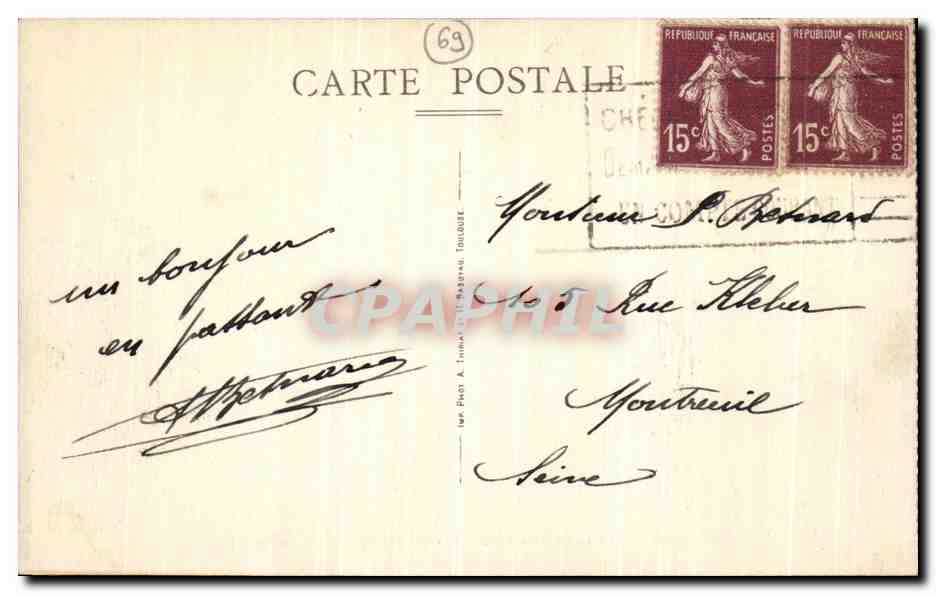 69
CARTE POSTALE
REPUBLIQUE FRANÇAISE
15c POSTES
REPUBLIQUE FRANÇAISE
15c POSTES
CHE
UN COM
un bonjour
en passant
ABesnard
CPAPHIL
IMP. PHOT A. THIRIAT TOULOUSE
Monsieur P. Besnard
105 Rue Kleber
Montreuil
Seine